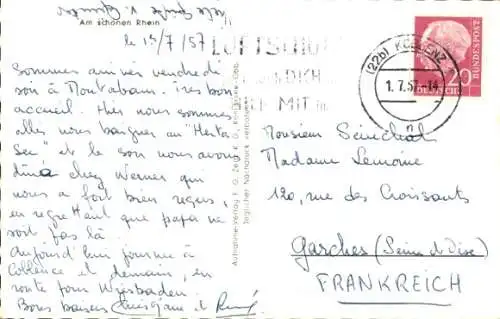 Am schönen Rhein
le 15/7/57
Sommes arrivés vendredi
soir à Montabaur. Très bon
accueil. Hier nous sommes
allés nous baigner au "Herta
See" et le soir nous avons
dîné chez Werner qui
nous a fort bien reçus,
en regrettant que papa ne
soit pas là
Aujourd'hui journée à
Coblence et demain, en
route pour Wiesbaden.
Bons baisers et René
Aufnahme-Verlag
Jeglicher Nachdruck verboten
LUFTSCHU
DICH
MIT
(22b) KOBLENZ
1.7.57.-14
n
20
DEUTSCHE
BUNDESPOST
Monsieur Sénéchal
Madame Lemoine
120, rue des Croissants
Garches (Seine et Oise)
FRANKREICH